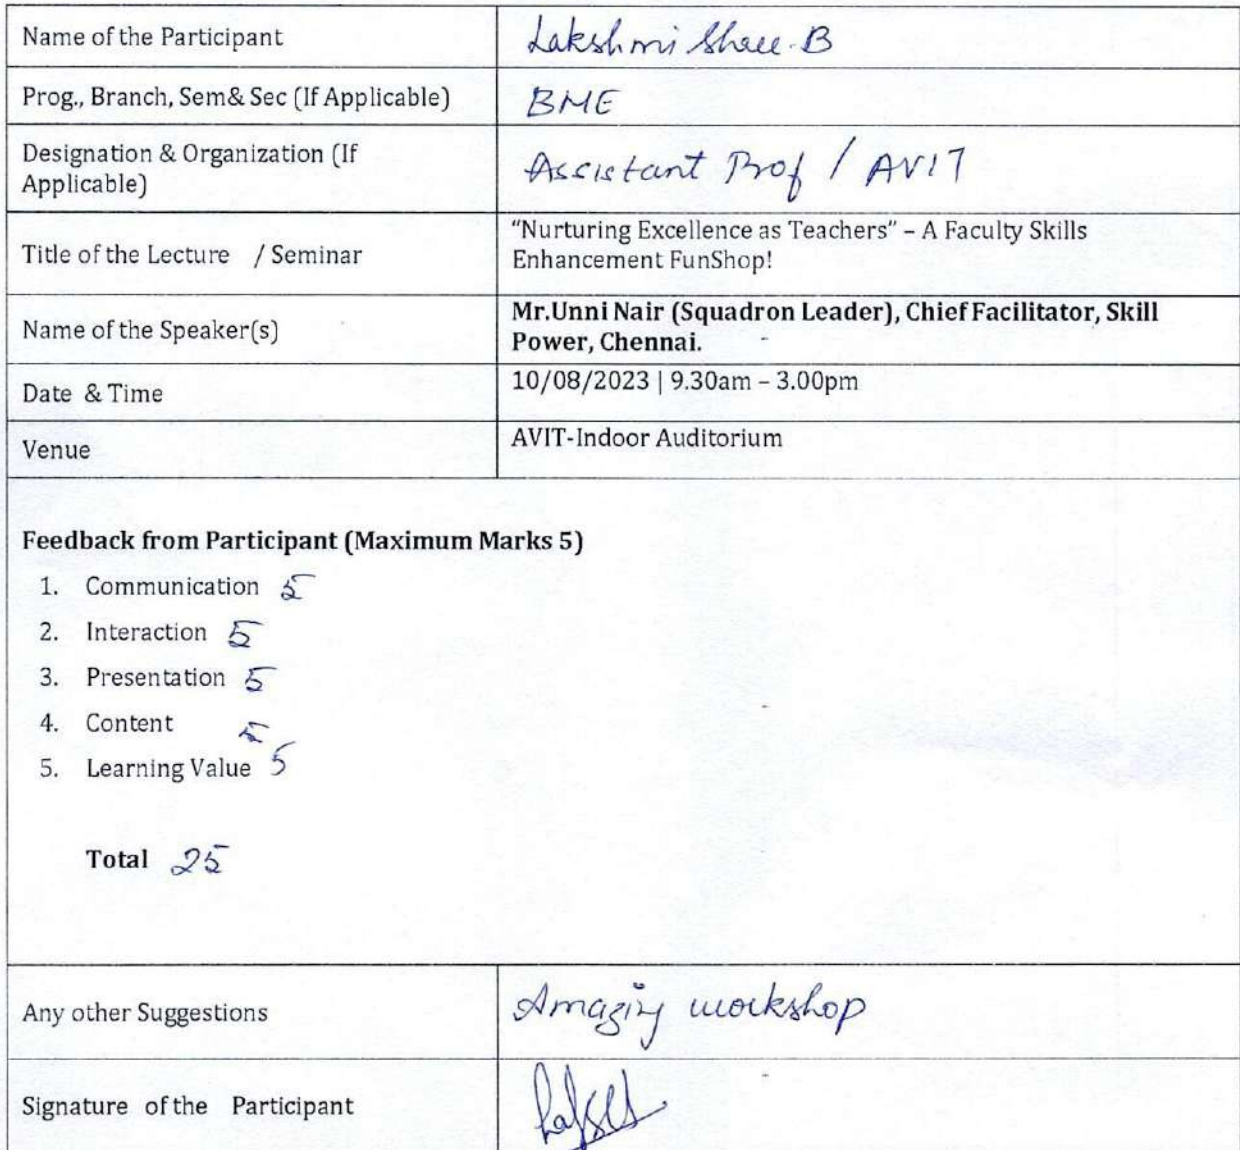 Name of the Participant
Lakshmi Shree. B
Prog., Branch, Sem& Sec (If Applicable)
BME
Designation & Organization (If
Applicable)
Assistant Prof / AVIT
Title of the Lecture / Seminar
"Nurturing Excellence as Teachers" – A Faculty Skills
Enhancement FunShop!
Name of the Speaker(s)
Mr.Unni Nair (Squadron Leader), Chief Facilitator, Skill
Power, Chennai.
Date & Time
10/08/2023 | 9.30am – 3.00pm
Venue
AVIT-Indoor Auditorium
Feedback from Participant (Maximum Marks 5)
1. Communication 5
2. Interaction 5
3. Presentation 5
4. Content 5
5. Learning Value 5
Total 25
Any other Suggestions
Amazing workshop
Signature of the Participant